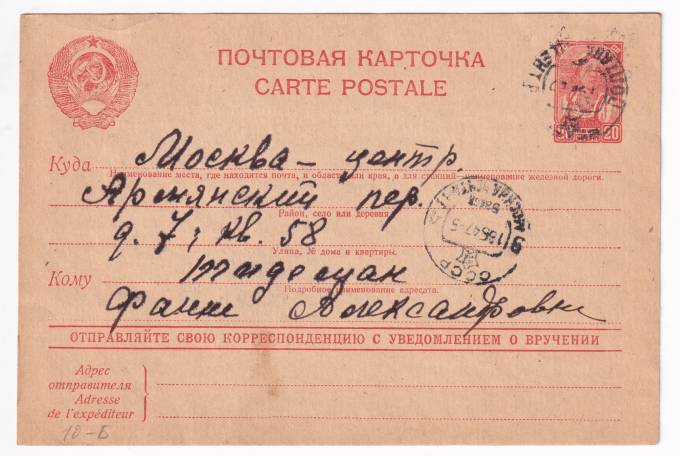 ПОЧТОВАЯ КАРТОЧКА
CARTE POSTALE
20
Куда Москва – центр,
Наименование места, где находится почта, и области или края, а для станций — наименование железной дороги.
Армянский пер.
Район, село или деревня
д. 7, кв. 58
Улица, № дома и квартиры.
Кому
Подробное наименование адресата.
Александровне
ОТПРАВЛЯЙТЕ СВОЮ КОРРЕСПОНДЕНЦИЮ С УВЕДОМЛЕНИЕМ О ВРУЧЕНИИ
Адрес
отправителя
Adresse
de l'expéditeur
10-Б
СССР